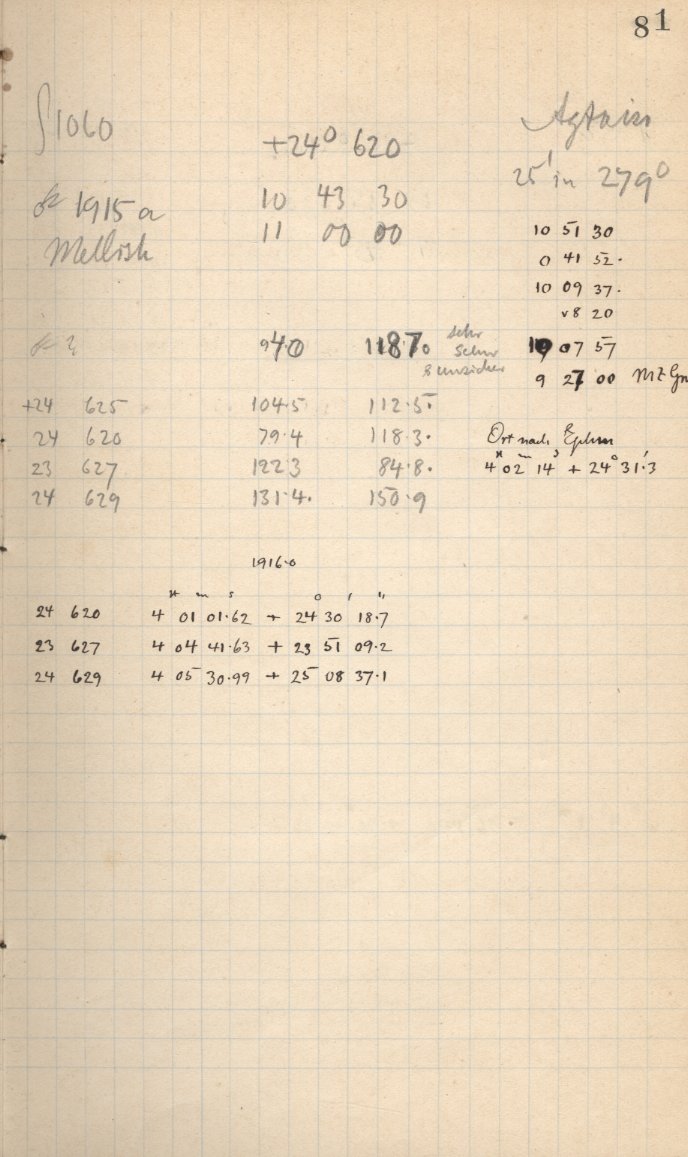 81
1060
+24° 620
25' in 279°
1915 a
Mellish
10 43 30
11 00 00
10 51 30
0 41 52.
10 09 37.
8 20
07 57
9 27 00 MZ Gr
?
940
1187.0
sehr
sehr
unsicher
+24 625 104.5 112.5
24 620 79.4 118.3.
23 627 122.3 84.8.
24 629 131.4. 150.9
Ort nach Ephem
4 02 14 + 24° 31.'3
1916.0
h m s ° ' "
24 620 4 01 01.62 + 24 30 18.7
23 627 4 04 41.63 + 23 51 09.2
24 629 4 05 30.99 + 25 08 37.1